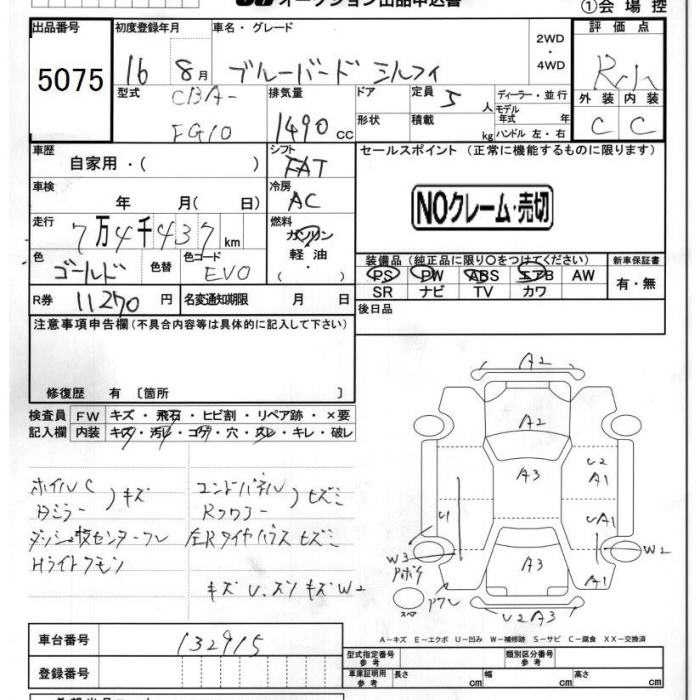 オークション出品申込書
①会場控
出品番号 初度登録年月 車名・グレード 2WD・4WD 評価点
5075 16 8月 ブルーバード シルフィ
型式 CBA-FG10 排気量 1490cc ドア 形状 定員 5人 積載 kg ディーラー・並行 モデル年式 年 ハンドル 左・右
外装 内装
C C
車歴 自家用・( ) シフト FAT セールスポイント (正常に機能するものに限ります)
車検 年 月( 日) 冷房 AC
NOクレーム・売切
走行 7万4千437km 燃料 ガソリン 軽油・
色 ゴールド 色替 色コード EV0
装備品 (純正品に限り○をつけてください) 新車保証書
PS PW ABS エアB AW 有・無
SR ナビ TV カワ
R券 11270円 名変通知期限 月 日 後日品
注意事項申告欄(不具合内容等は具体的に記入して下さい)
修復歴 有 〔箇所 〕
検査員 FW キズ・飛石・ヒビ割・リペア跡・×要
記入欄 内装 キズ・汚レ・コゲ・穴・スレ・キレ・破レ
ホイルC
Bミラー )キズ
エンドパネル
Rフロアー )ヒズミ
左Rタイヤハウスヒズミ
Hライトクモリ
キズU.ズレキズW2
A2
A2
A3
U2
A1
U
UA1
W3
W2
A3
A1
スペア
U2A3
A-キズ E-エクボ U-凹み W-補修跡 S-サビ C-腐食 XX-交換済
車台番号 132915
型式指定番号 参考 類別区分番号 参考
登録番号
車庫証明用 参考 長さ cm 幅 cm 高さ cm